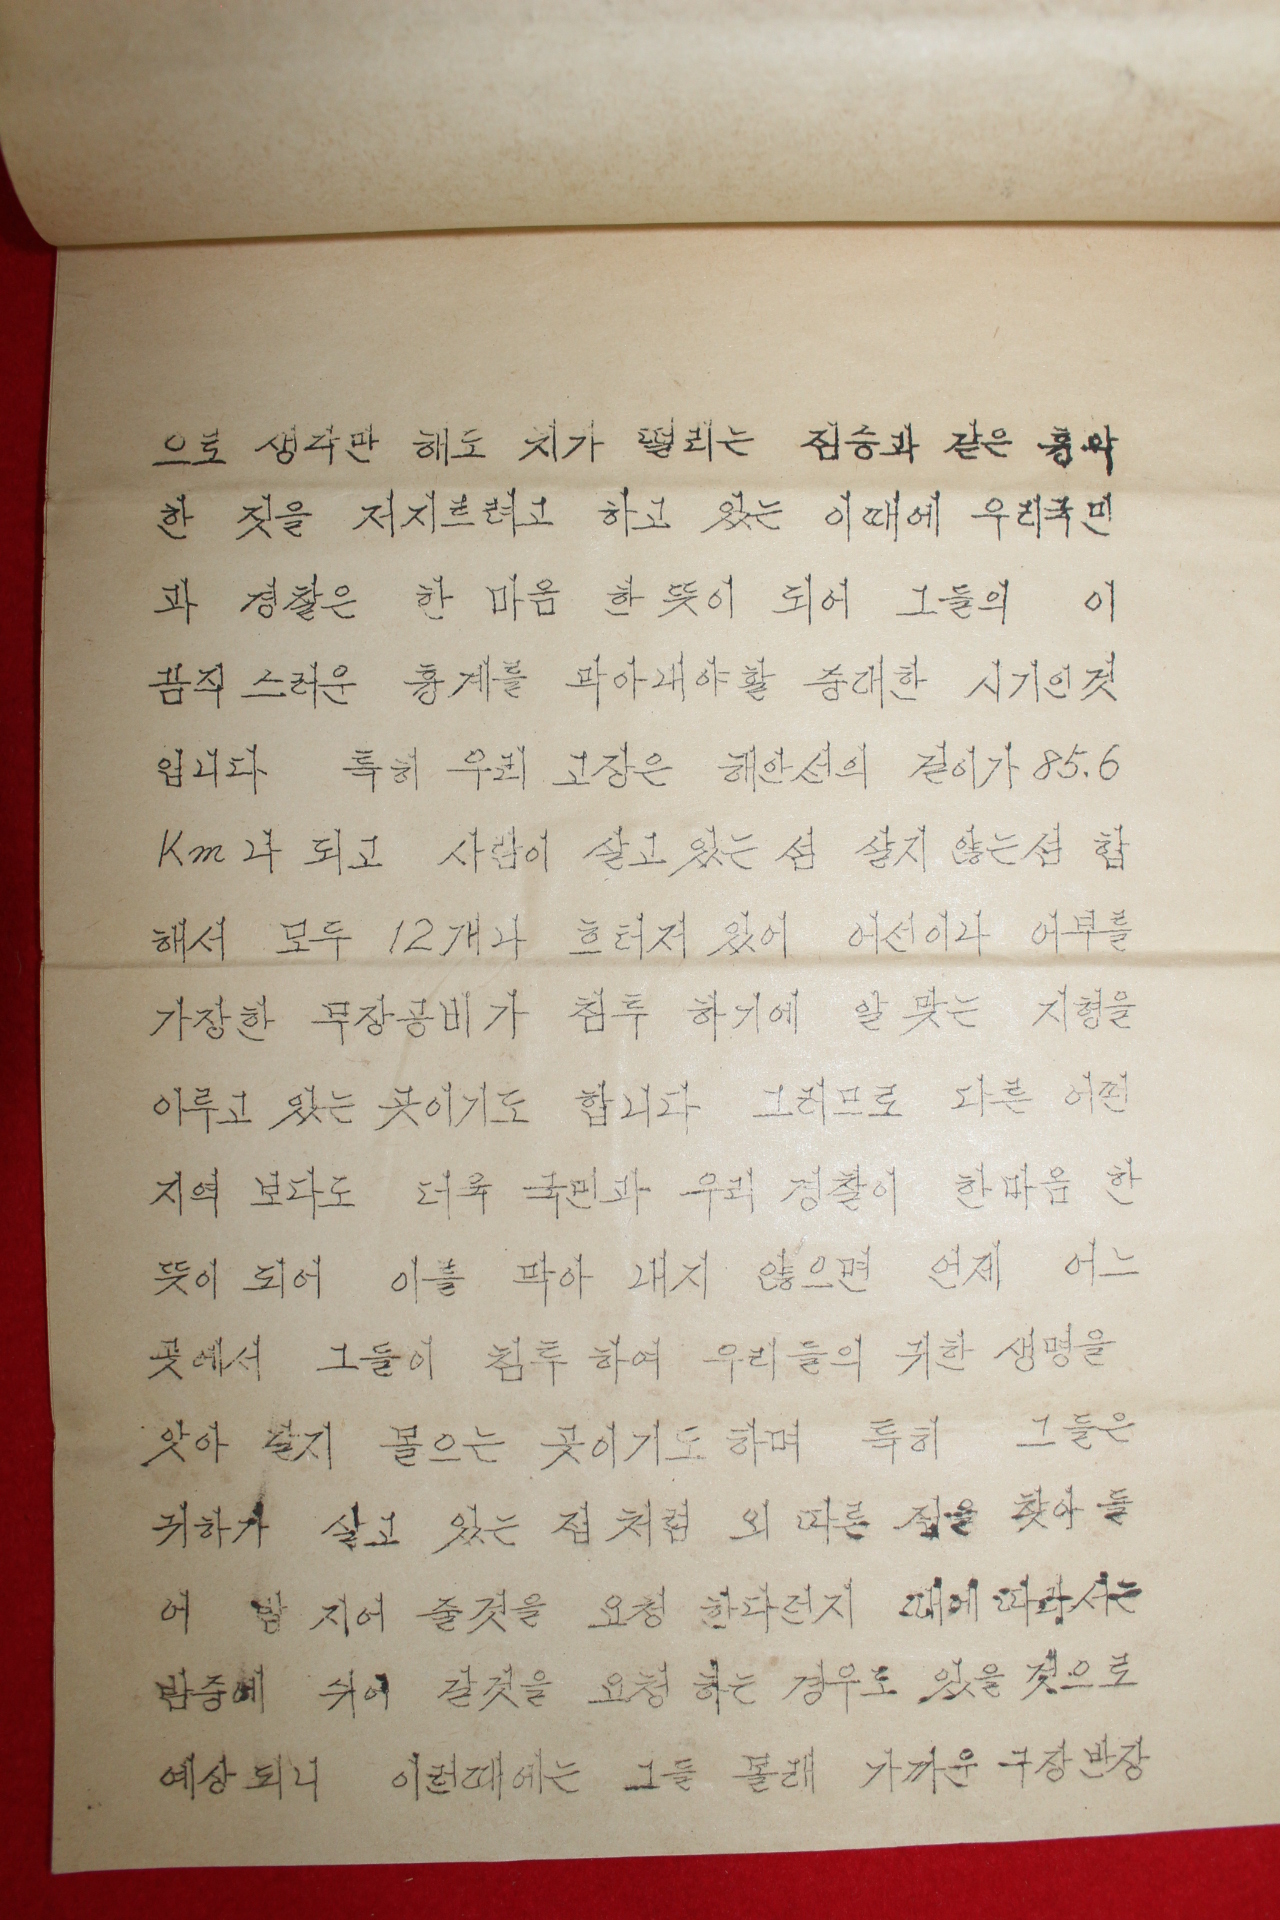 으로 생각만 해도 치가 떨리는 짐승과 같은 흉악
한 짓을 저지르려고 하고 있는 이때에 우리국민
과 경찰은 한 마음 한 뜻이 되어 그들의 이
끔직 스러운 흉계를 막아내야 할 중대한 시기인것
입니다 특히 우리 고장은 해안선의 길이가 85.6
Km나 되고 사람이 살고 있는 섬 살지 않는섬 합
해서 모두 12개나 흐터져 있어 어선이나 어부를
가장한 무장공비가 침투 하기에 알 맞는 지형을
이루고 있는 곳이기도 합니다 그러므로 다른 어떤
지역 보다도 더욱 국민과 우리 경찰이 한마음 한
뜻이 되어 이를 막아 내지 않으면 언제 어느
곳에서 그들이 침투 하여 우리들의 귀한 생명을
앗아 갈지 몰으는 곳이기도 하며 특히 그들은
귀하가 살고 있는 집 처럼 외 따른 집을 찾아 들
어 밥 지어 줄것을 요청 한다던지 때에 따라서는
밤중에 쉬어 갈것을 요청 하는 경우도 있을 것으로
예상 되니 이런때에는 그들 몰래 가까운 구장 반장